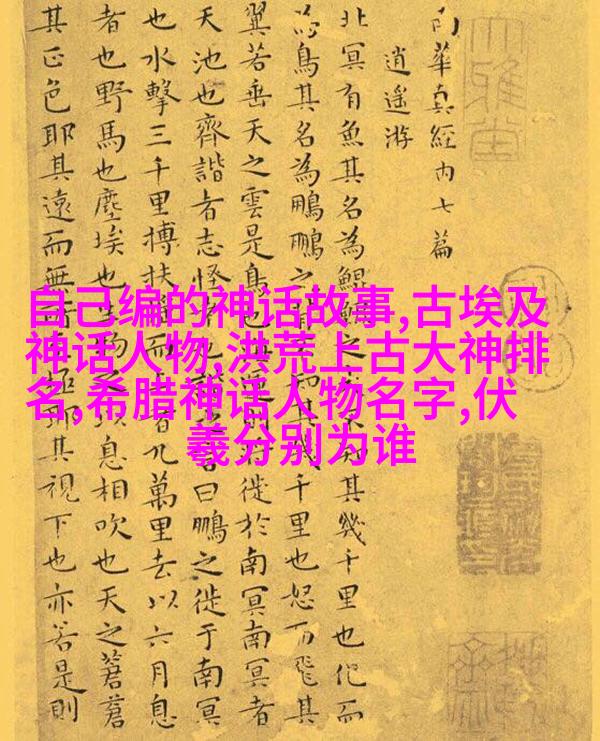 自己编的神话故事,古埃及
神话人物,洪荒上古大神排
名,希腊神话人物名字,伏
羲分别为谁
南華真經內七篇
逍遙游
北冥有魚其名為鯤鯤之不知其幾千里也化而
為鳥其名為鵬鵬之知其幾千里也怒而飛其
翼若垂天之雲是鳥也運則將徙於南冥南冥者
天池也齊諧者志怪者也諧言曰鵬之徙于南冥
也水擊三千里搏扶而上者九萬里去以六月息
者也野馬也塵埃也生物之以息相吹也天之蒼蒼
其正色耶其遠而無所極耶其視下也亦若是則